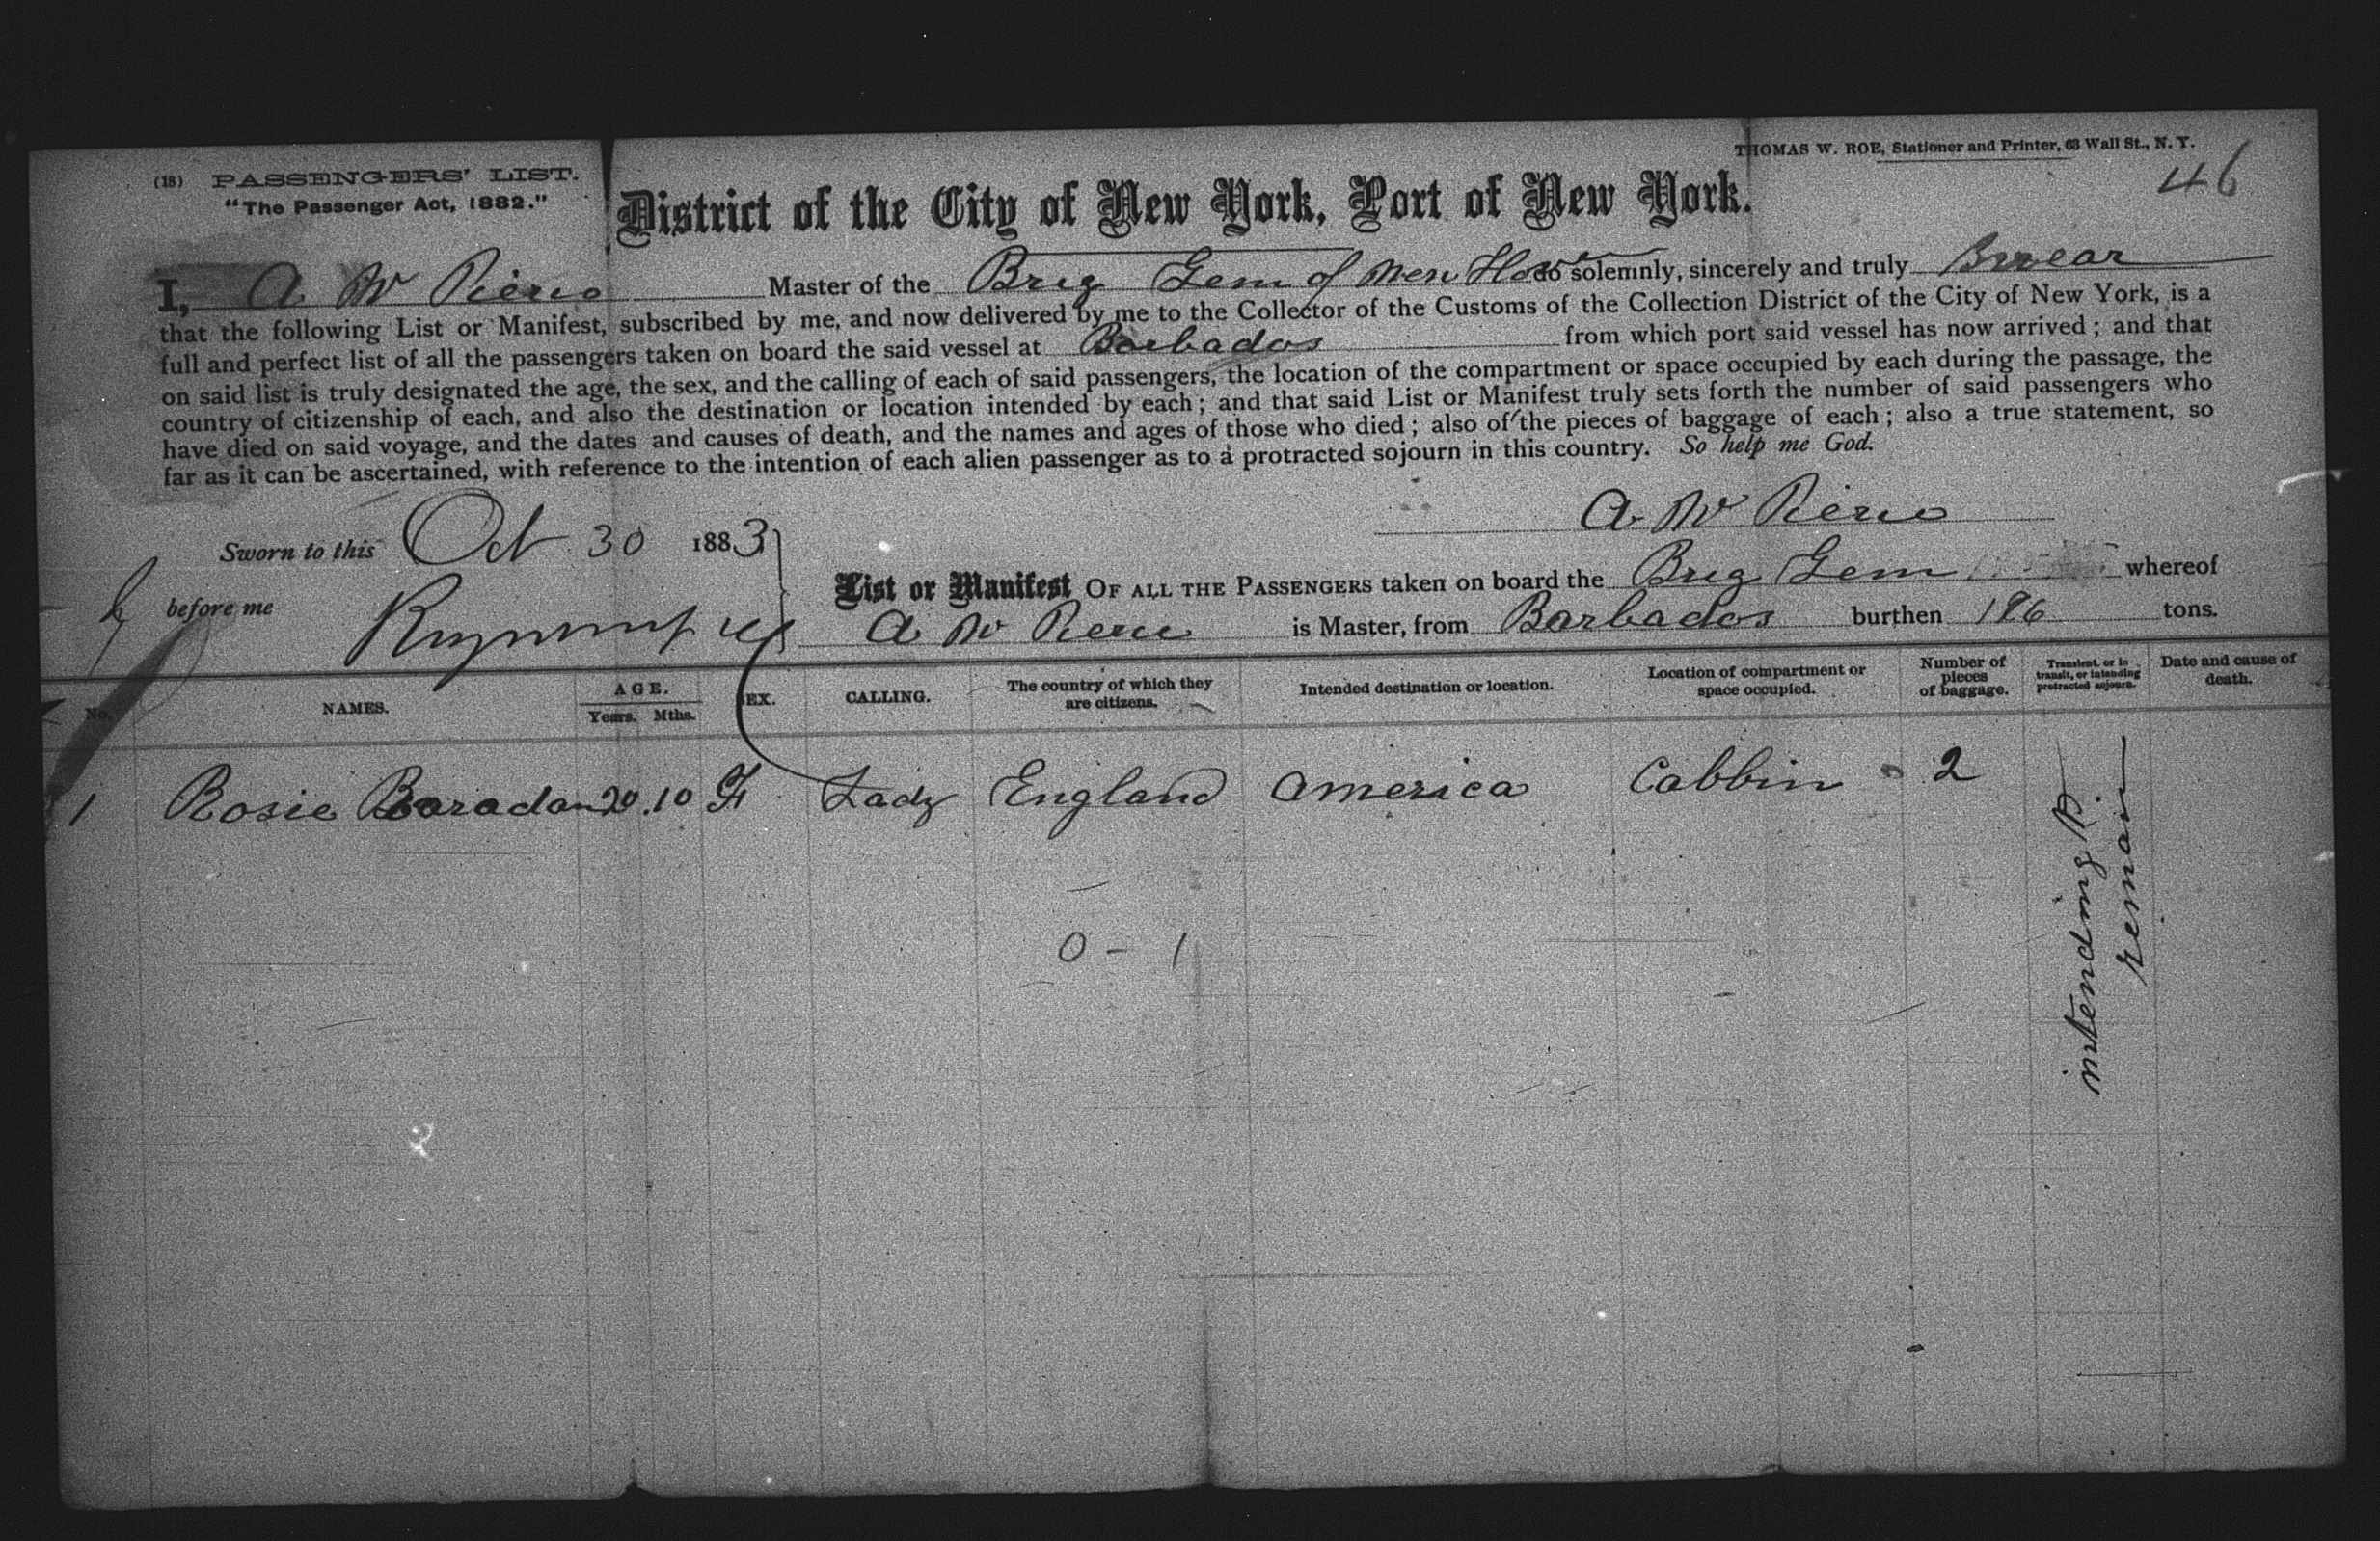 (18) PASSENGERS' LIST.
"The Passenger Act, 1882."
THOMAS W. ROE, Stationer and Printer, 63 Wall St., N. Y.
46
District of the City of New York, Port of New York.
I, A W Master of the Brig Gem of do solemnly, sincerely and truly Swear
that the following List or Manifest, subscribed by me, and now delivered by me to the Collector of the Customs of the Collection District of the City of New York, is a
full and perfect list of all the passengers taken on board the said vessel at Barbados from which port said vessel has now arrived; and that
on said list is truly designated the age, the sex, and the calling of each of said passengers, the location of the compartment or space occupied by each during the passage, the
country of citizenship of each, and also the destination or location intended by each; and that said List or Manifest truly sets forth the number of said passengers who
have died on said voyage, and the dates and causes of death, and the names and ages of those who died; also of the pieces of baggage of each; also a true statement, so
far as it can be ascertained, with reference to the intention of each alien passenger as to a protracted sojourn in this country. So help me God.
A W
Sworn to this Oct 30 1883
before me
List or Manifest OF ALL THE PASSENGERS taken on board the Brig Gem whereof
A W is Master, from Barbados burthen 186 tons.
No. NAMES. AGE. Years. Mths. SEX. CALLING. The country of which they are citizens. Intended destination or location. Location of compartment or space occupied. Number of pieces of baggage. Transient, or in transit, or intending protracted sojourn. Date and cause of death.
1 Rosie Baradan 20 .10 F Lady England America Cabbin 2
intending
remain
0 - 1